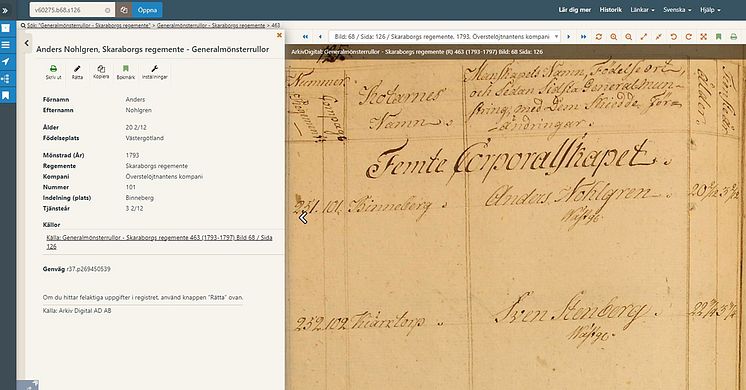 v60275.b68.s126
Öppna
Lär dig mer
Historik
Länkar
Svenska
Hjälp
Sök: "Generalmönsterrullor - Skaraborgs regemente" > Generalmönsterrullor - Skaraborgs regemente > 463
Bild: 68 / Sida: 126 / Skaraborgs regemente. 1793. Överstelöjtnantens kompani
ArkivDigital: Generalmönsterrullor - Skaraborgs regemente (R) 463 (1793-1797) Bild: 68 Sida: 126
Anders Nohlgren, Skaraborgs regemente - Generalmönsterrullor
Skriv ut
Rätta
Kopiera
Bokmärk
Inställningar
Förnamn Anders
Efternamn Nohlgren
Ålder 20 2/12
Födelseplats Västergötland
Mönstrad (År) 1793
Regemente Skaraborgs regemente
Kompani Överstelöjtnantens kompani
Nummer 101
Indelning (plats) Binneberg
Tjänsteår 3 2/12
Källor
Källa: Generalmönsterrullor - Skaraborgs regemente 463 (1793-1797) Bild 68 / Sida
126
Genväg r37.p269450539
Om du hittar felaktiga uppgifter i registret, använd knappen "Rätta" ovan.
Källa: Arkiv Digital AD AB
Nummer
Rotarnes
Namn
Manskapets Namn, Födelse ort,
och Sedan Sidsta General mun-
string, med Dem Skiedde För-
ändringar.
Ålder
Femte Corporalskapet.
251. 101. Binneberg
Anders Nohlgren
20 2/12 3 2/12
Wästg:
252. 102
Sven Stenberg
Wästg: